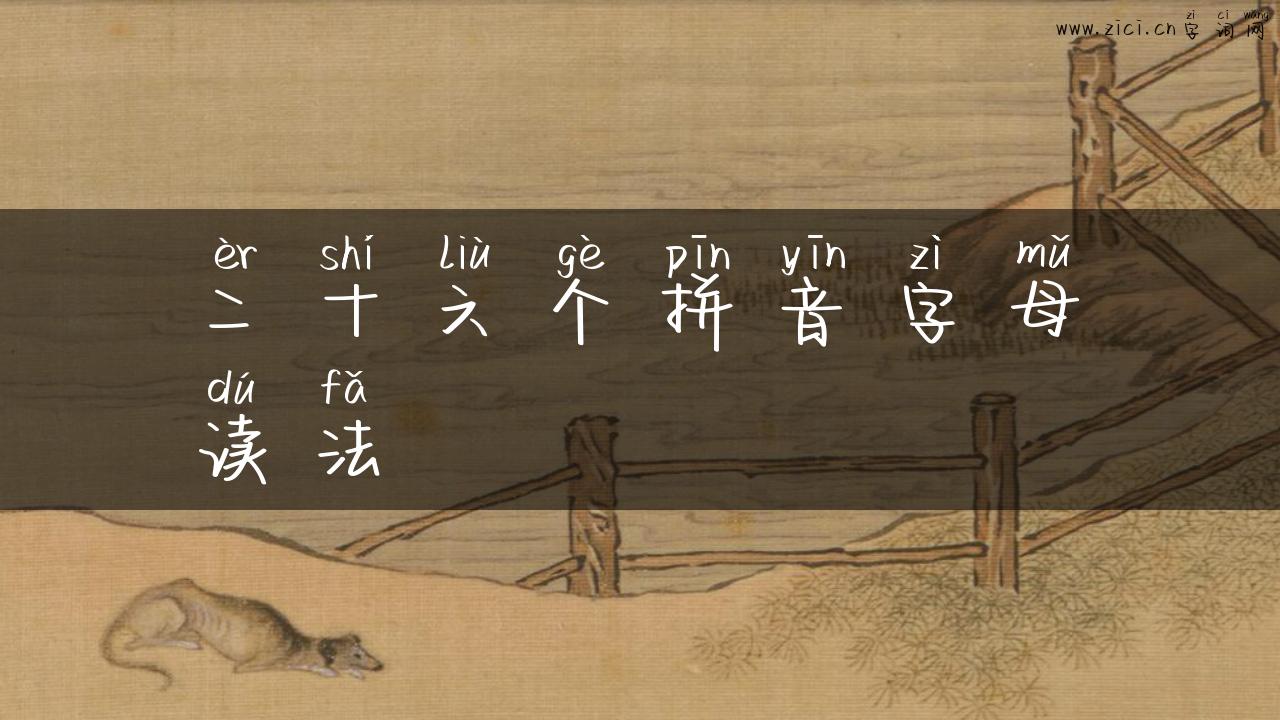 zì cí wǎng
www.zici.cn 字词网
èr shí liù gè pīn yīn zì mǔ
二十六个拼音字母
dú fǎ
读法